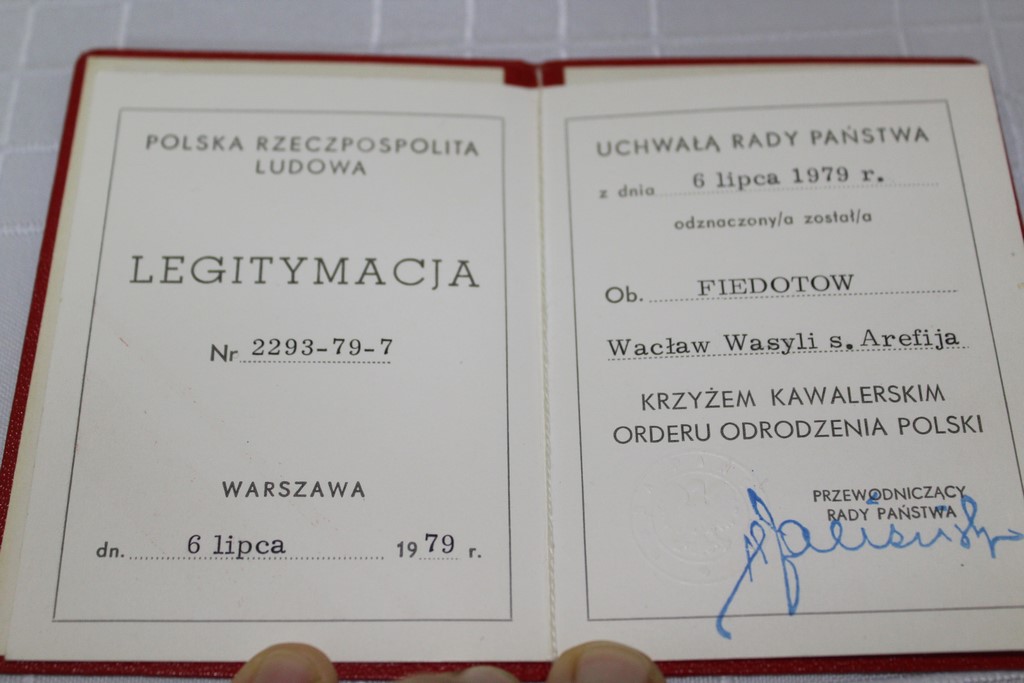 POLSKA RZECZPOSPOLITA
LUDOWA
LEGITYMACJA
Nr 2293-79-7
WARSZAWA
dn. 6 lipca 1979 r.
UCHWAŁĄ RADY PAŃSTWA
z dnia 6 lipca 1979 r.
odznaczony/a został/a
Ob. FIEDOTOW
Wacław Wasyli s. Arefija
KRZYŻEM KAWALERSKIM
ORDERU ODRODZENIA POLSKI
PRZEWODNICZĄCY
RADY PAŃSTWA